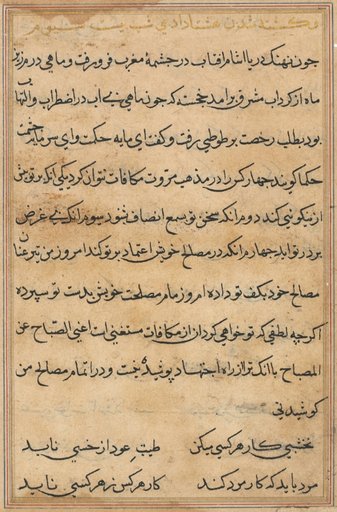 چون نهنک دریا اشام افتاب در چشمهٔ مغرب فرو رفت و ماهی
ماه از کرداب مشرق برامد خجسته که چون ماهی بی اب در اضطراب و التهاب
بود بطلب رخصت بر طوطی رفت و کفت ای مایه حکمت و ای سرمایه حشمت
حکما کویند چهار کس را در مذهب مروت مکافات نتوان کرد یکی انکه بر تو پیش
از نیکویی کند دوم انکه سخن تو بسمع انصاف شنود سوم انکه بی غرض
بر در تو اید چهارم انکه در مصالح خویش اعتماد بر تو کند امروز من نیز عنان
مصالح خود بکف تو داده ام و زمام مصلحت خویش بدست تو سپرده
اکرچه لطفی که تو خواهی کرد ان از مکافات مستغنی است اعنی الصباح عن
المصباح با انک ترا از راه اجتهاد پوشیده نیست و در اتمام مصالح من
کوشیدنی
نخشبی کار هر کسی میکن طیب عود از خسی ناید
مرد باید که کار مرد کند کار هر کس ز هر کسی ناید